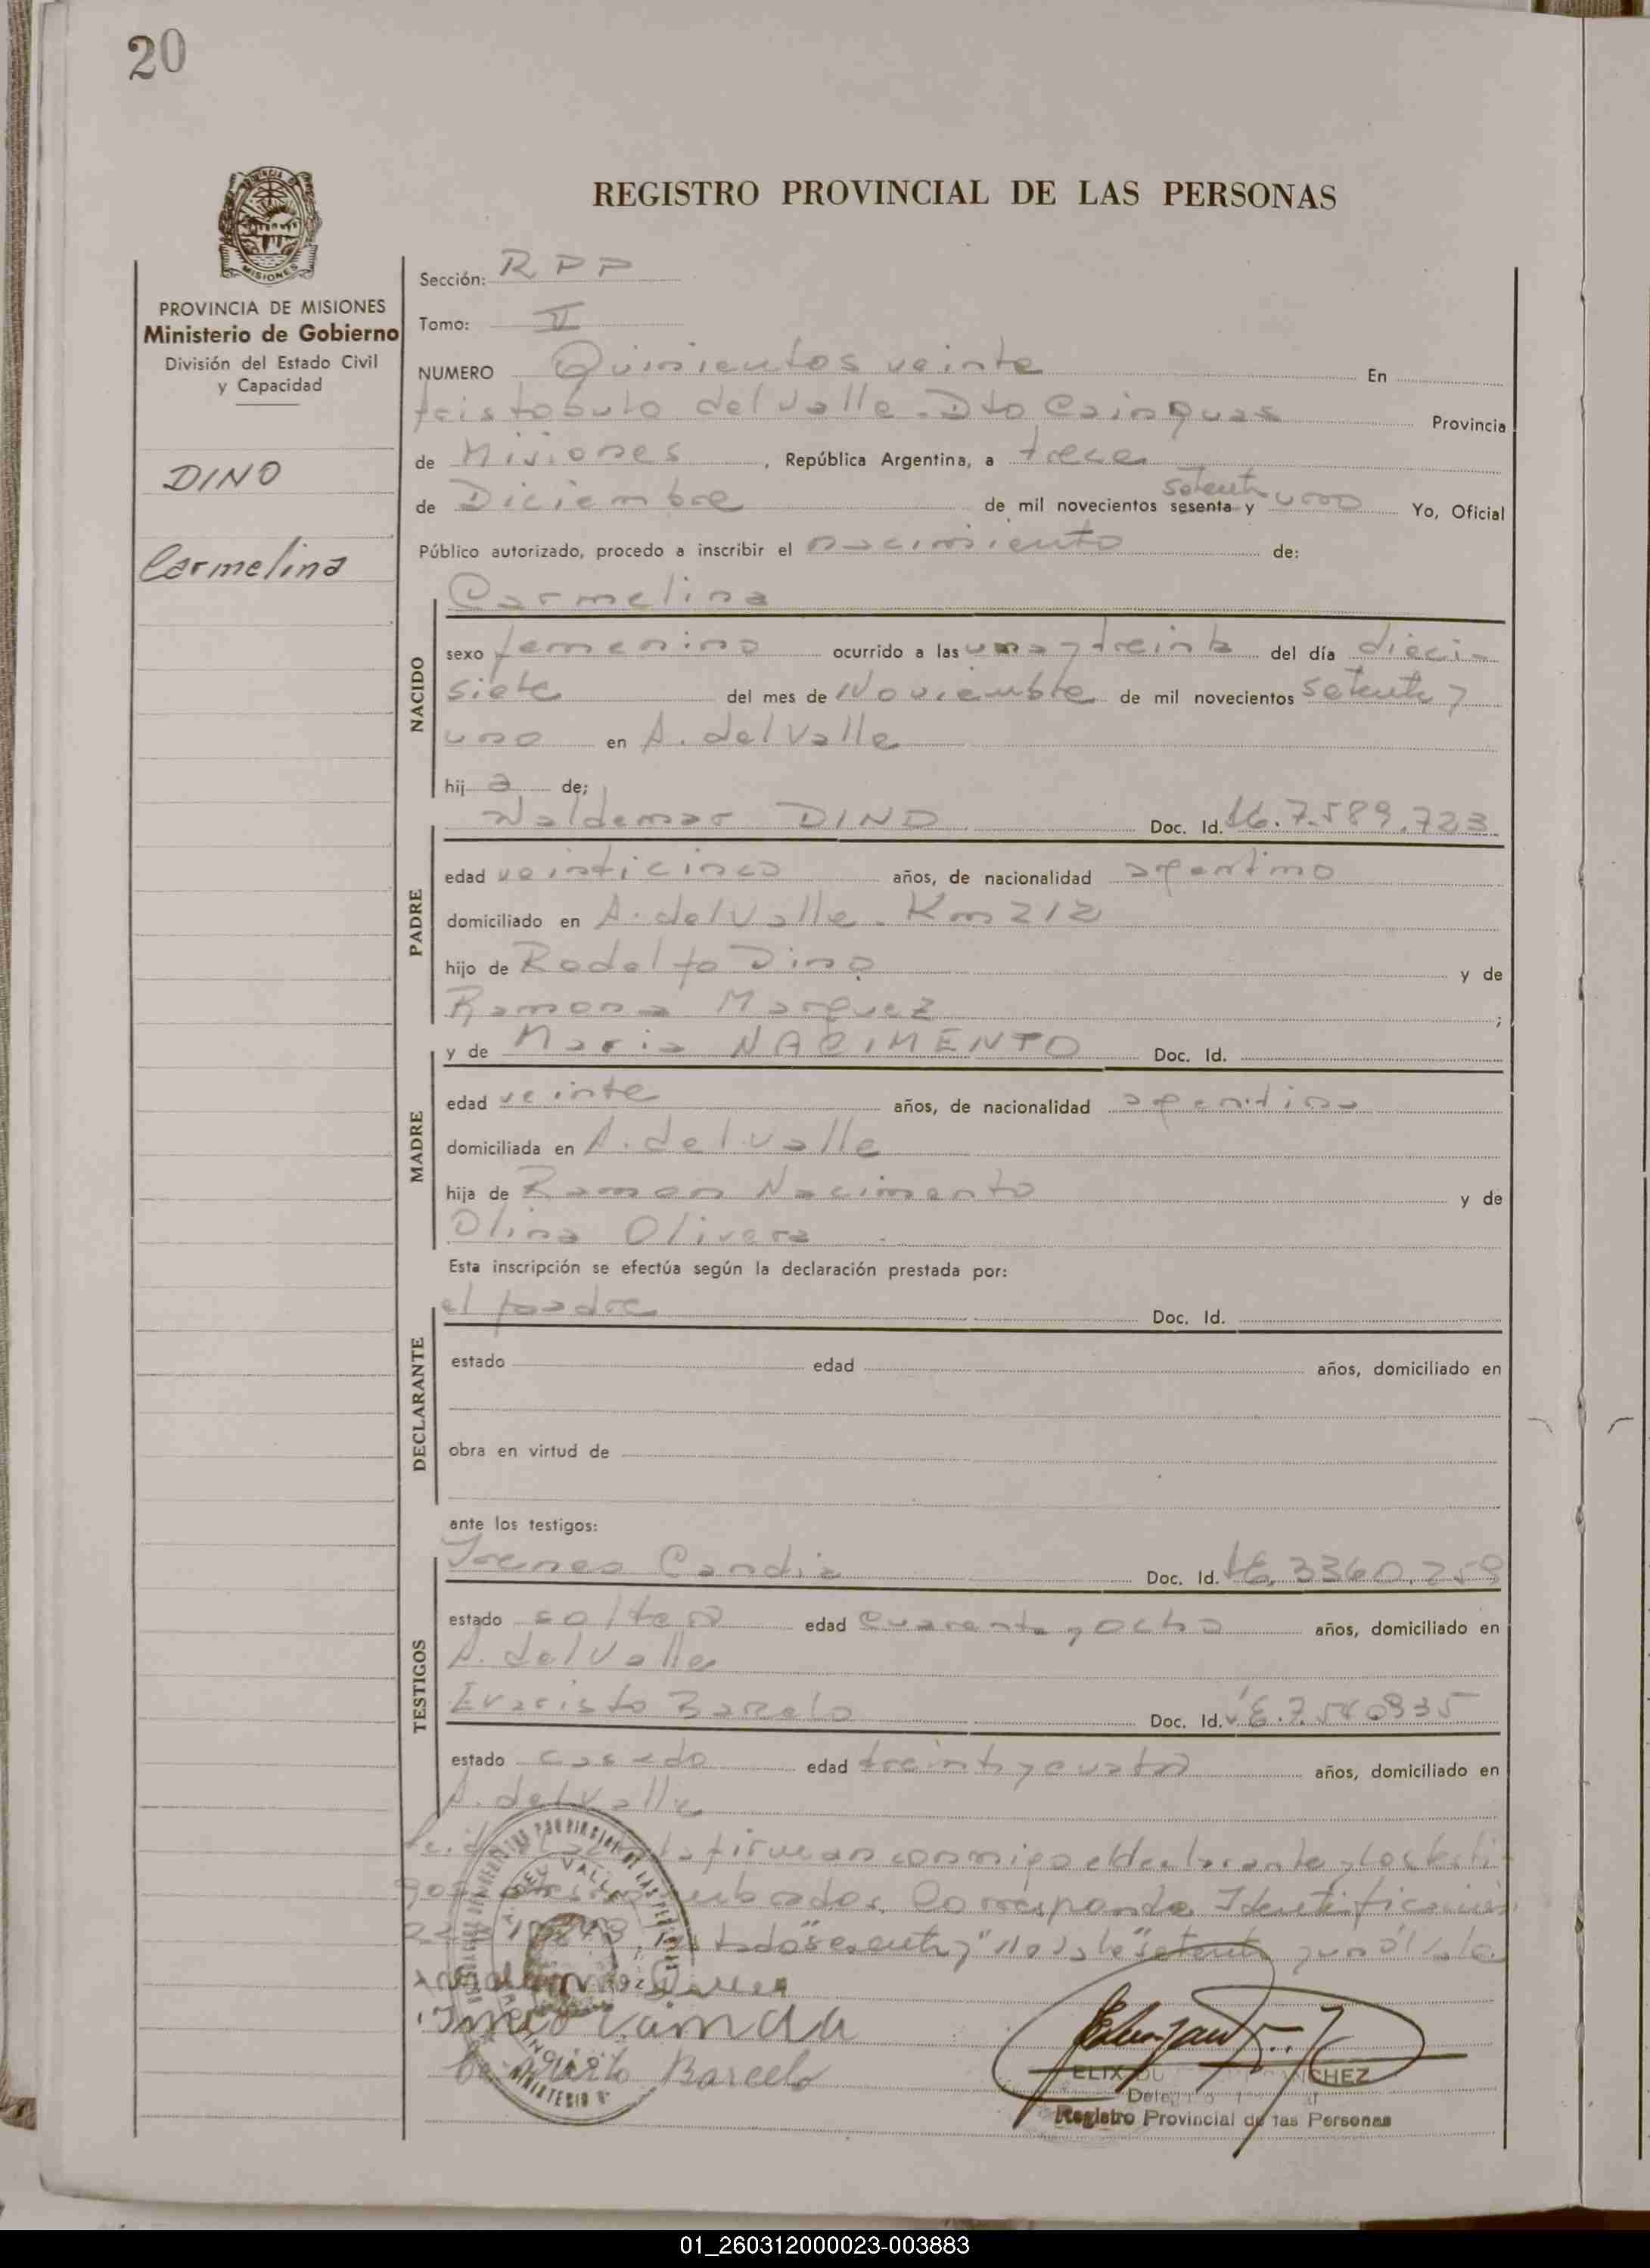 20
REGISTRO PROVINCIAL DE LAS PERSONAS
MISIONES
PROVINCIA DE MISIONES
Ministerio de Gobierno
División del Estado Civil
y Capacidad
DINO
Carmelina
Sección: RPP
Tomo: II
NUMERO Quinientos veinte En
Aristobulo del Valle. Dto Cainguas Provincia
de Misiones, República Argentina, a trece
setenta
de Diciembre de mil novecientos sesenta y uno Yo, Oficial
Público autorizado, procedo a inscribir el nacimiento de:
Carmelina
NACIDO
sexo femenino ocurrido a las una y treinta del día dieci-
siete del mes de Noviembre de mil novecientos setenta y
uno en A. del Valle
hij a de;
Waldemar DINO Doc. Id. 7.589.723
PADRE
edad veinticinco años, de nacionalidad argentino
domiciliado en A. del Valle. Km 212
hijo de Rodolfo Dino y de
Ramona Marquez ;
y de Maria NACIMENTO Doc. Id.
MADRE
edad veinte años, de nacionalidad argentina
domiciliada en A. del Valle
hija de Ramon Nacimento y de
Olina Olivera
Esta inscripción se efectúa según la declaración prestada por:
el padre Doc. Id.
DECLARANTE
estado edad años, domiciliado en
obra en virtud de
ante los testigos:
Ireneo Candia Doc. Id. 3360.259
TESTIGOS
estado soltero edad cuarenta y ocho años, domiciliado en
A. del Valle
Evaristo Barcelo Doc. Id.
estado casado edad treinta y cuatro años, domiciliado en
A. del Valle
firman conmigo el declarante y los testi-
gos Corresponde Identificación
"sesenta y" no vale "setenta y uno" vale
Barcelo
Registro Provincial de las Personas
01_260312000023-003883